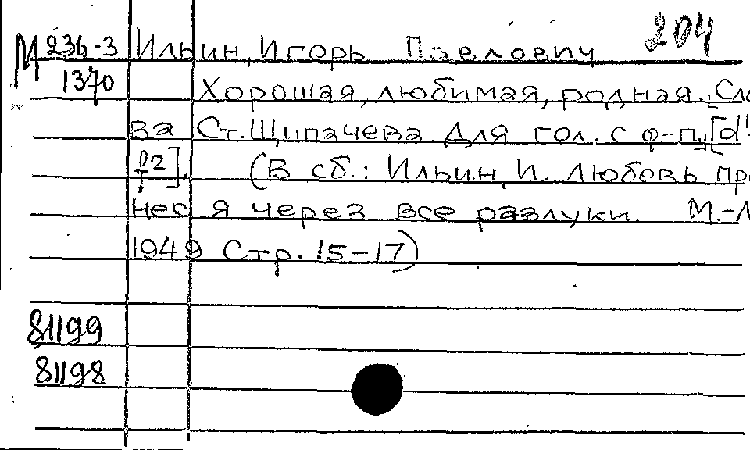 М 236-3 Ильин, Игорь Павлович 204
1370 Хорошая, любимая, родная. Сло
ва Ст. Щипачева для гол. с ф-п. [d¹
f2]. (В сб.: Ильин, И. Любовь про
нес я через все разлуки. М.-Л
1949 Стр. 15-17)
81199
81198